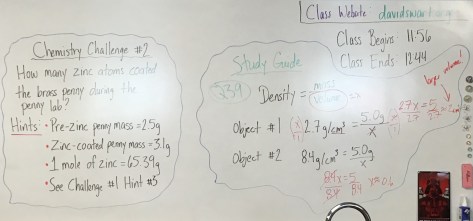 Class Website: david
Class Begins: 11:56
Class Ends: 12:44
Chemistry Challenge #2
How many zinc atoms coated
the brass penny during the
penny lab?
Hints: • Pre-zinc penny mass = 2.5g
• Zinc-coated penny mass = 3.1g
• 1 mole of zinc = 65.39g
• See Challenge #1 Hint #3
Study Guide
#39
Density = mass
Volume
Object #1 2.7g/cm³ = 5.0g
x
Object #2 84g/cm³ = 5.0g
x
larger volume!
27x = 5
84x = 5
84 84
x = 0.6